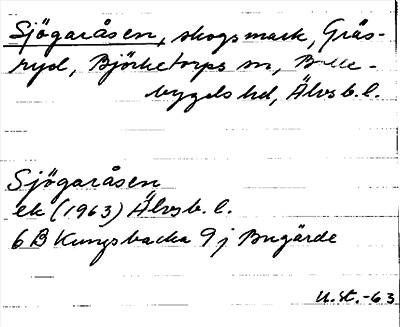 Sjögaråsen, skogsmark, Gräs-
ryd, Björketorps sn, Bolle-
bygds hd, Älvsb. l.
Sjögaråsen
ek (1963) Älvsb. l.
6 B Kungsbacka 9 j Bugärde
U.st.-63